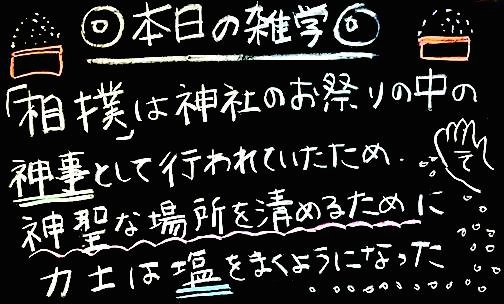 ◎本日の雑学◎
「相撲」は神社のお祭りの中の
神事として行われていたため、
神聖な場所を清めるために
力士は塩をまくようになった
て